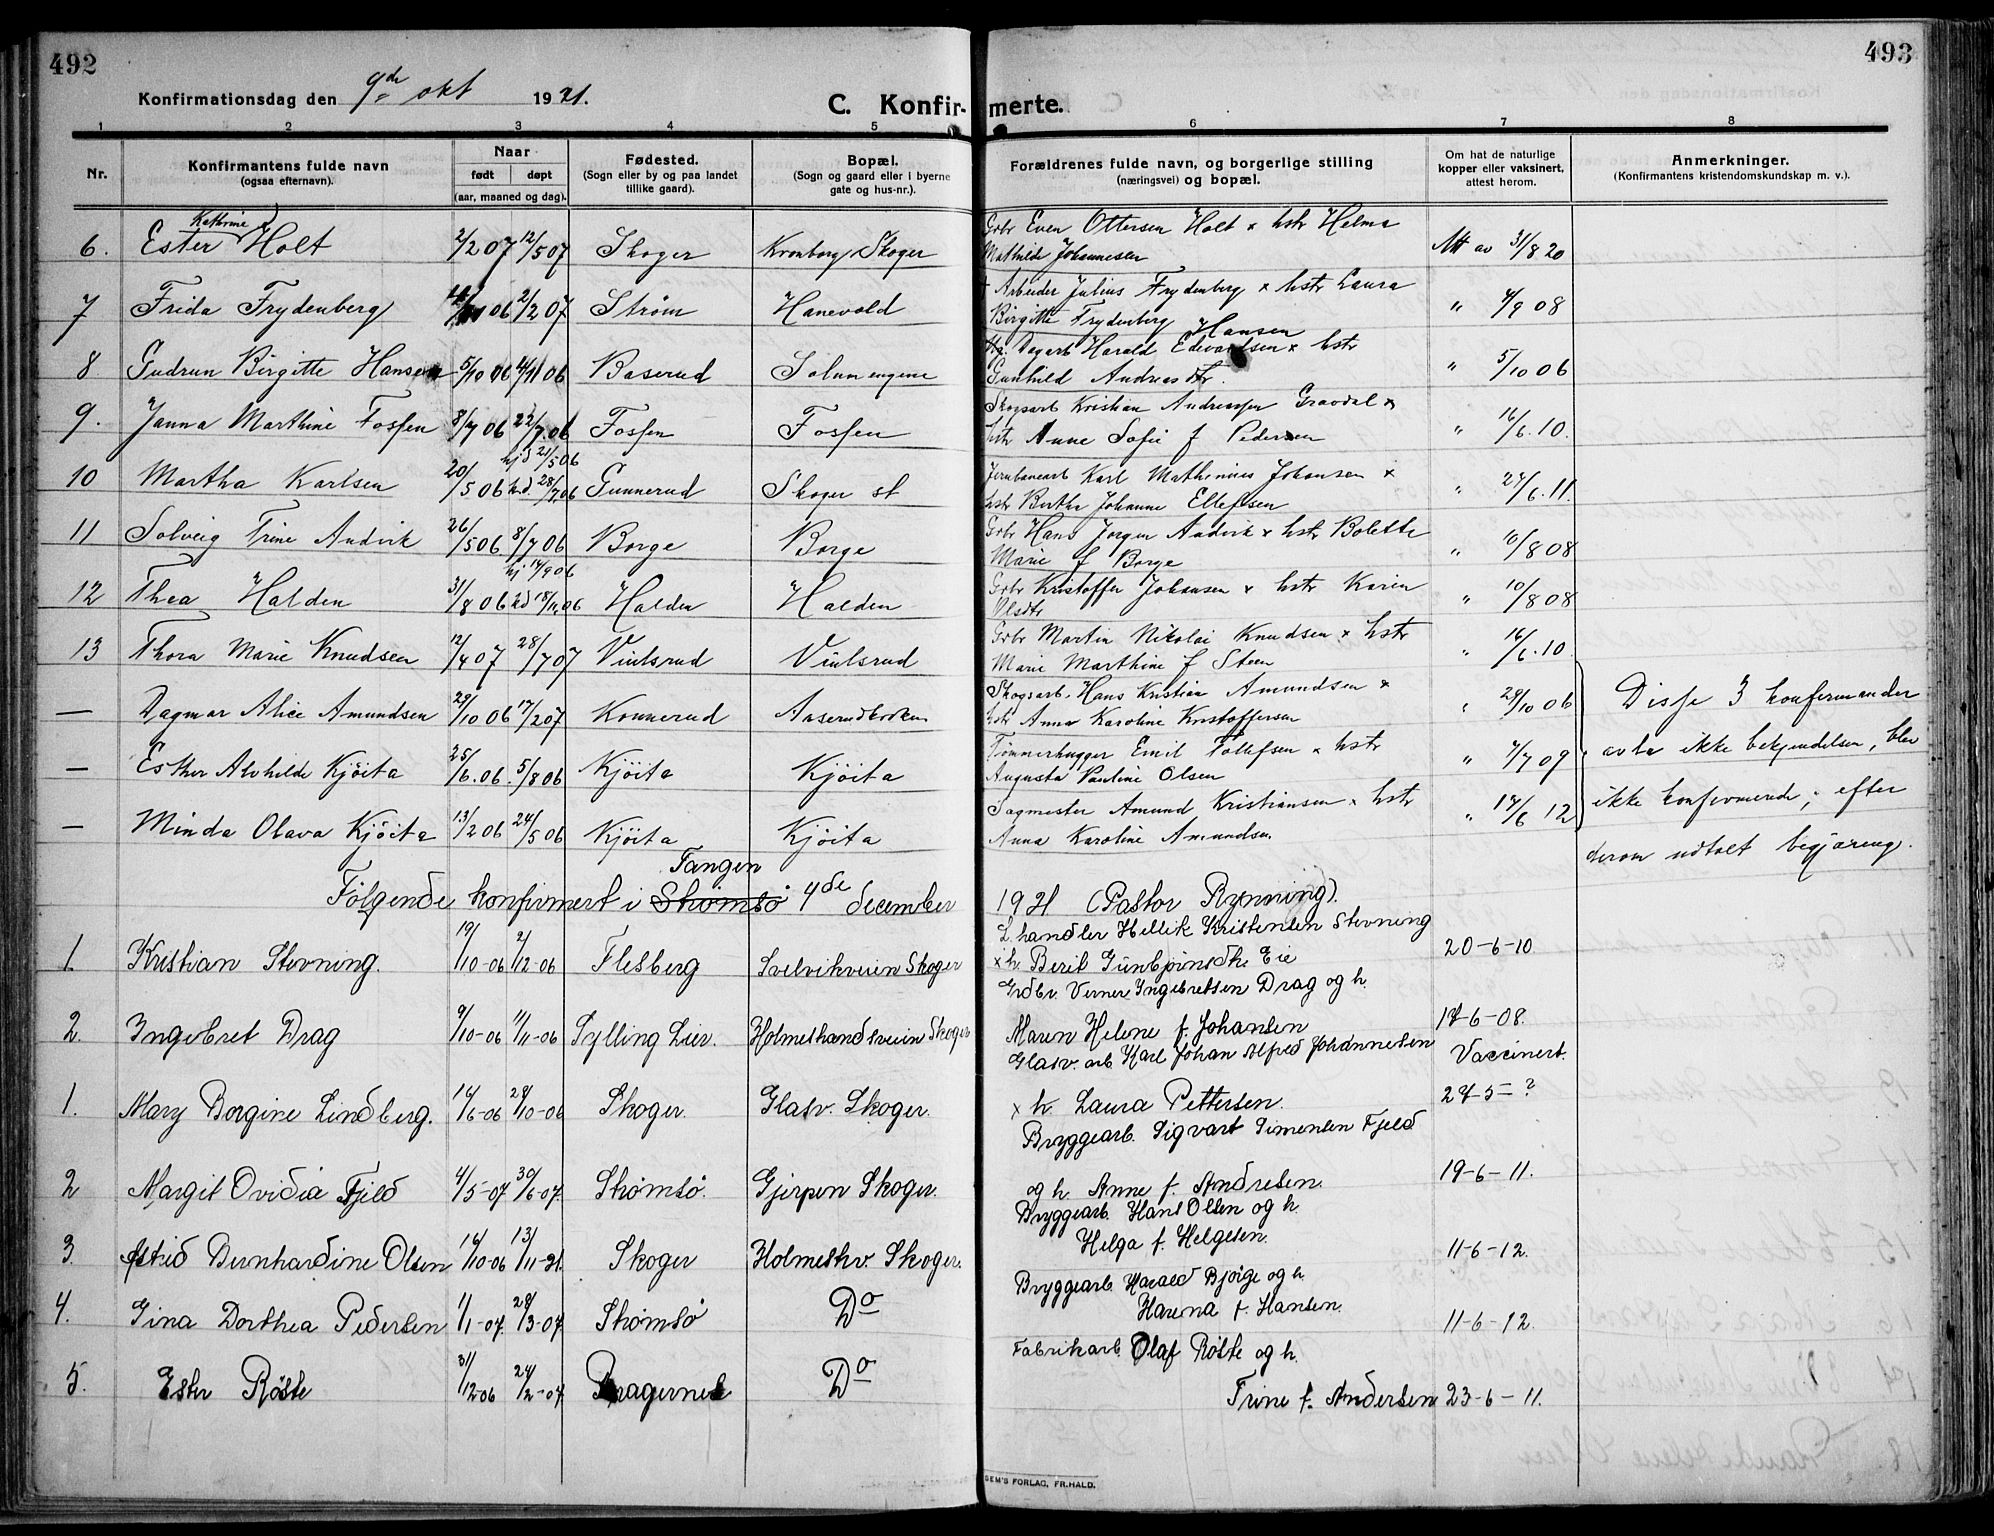 492
493
Konfirmationsdag den 9de okt 1921.
C. Konfirmerte.
1 2 3 4 5 6 7 8
Nr.
Konfirmantens fulde navn
(ogsaa efternavn).
Naar
født døpt
(aar, maaned og dag).
Fødested.
(Sogn eller by og paa landet
tillike gaard).
Bopæl.
(Sogn og gaard eller i byerne
gate og hus-nr.).
Forældrenes fulde navn, og borgerlige stilling
(næringsvei) og bopæl.
Om hat de naturlige
kopper eller vaksinert,
attest herom.
Anmerkninger.
(Konfirmantens kristendomskundskap m. v.).
Kathrine
6. Ester Holt 2/2 07 12/5 07 Skoger Kronborg, Skoger Grbr Even Ottersen Holt x hstr Helma
Mathilde Johannesen Att av 31/8 20
7 Frida Frydenberg 06 2/2 07 Strøm Hanevold † Arbeider Julius Frydenberg x hstr Laura
Birgitte Frydenberg " 4/9 08
Hansen
8 Gudrun Birgitte Hansen 5/10 06 4/11 06 Baserud Solumengene Dagarb Harald Edvardsen x hstr
Gunhild Andreasdtr. " 5/10 06
9. Janna Marthine Fossen 8/7 06 22/7.06 Fossen Fossen Skogsarb Kristian Andreassen Gravdal x
hstr Anne Sofie f Pedersen " 16/6.10.
hjd 21/5 06
10 Martha Karlsen 20/5 06 kd. 28/7 06 Gunnerud Skoger st Jernbanearb Karl Mathinius Johansen x
hstr Berthe Johanne Ellefsen " 24/6.11.
11 Solveig Trine Andvik 26/5 06. 8/7 06 Borge Borge Grbr Hans Jørgen Andvik x hstr Bolette
Marie f Borge " 10/8 08
hj 14/9 06
12 Thea Halden 31/8 06 kd 18/11.06 Halden Halden Grbr Kristoffer Johansen x hstr Karen
Olsdtr " 10/8 08
13 Thora Marie Knudsen 12/4 07 28/7 07 Viulsrud Viulsrud Grbr Martin Nikolai Knudsen x hstr
Marie Marthine f Steen " 16/6.10.
— Dagmar Alice Amundsen 29/10 06 17/2 07 Konnerud Aaserudbroken Skogsarb. Hans Kristian Amundsen x
hstr Anna Karoline Kristoffersen " 29/10 06 Disse 3 konfirmander
— Esther Alvhilde Kjöita 25/6.06. 5/8 06 Kjöita Kjöita Tømmerhugger Emil Tollefsen x hstr
Augusta Pauline Olsen " 7/7 09 avla ikke bekjendelsen, blev
— Minda Olava Kjöita 13/2 06 24/5 06 Kjöita Kjöita Sagmester Amund Kristiansen x hstr
Anna Karoline Amundsen " 14/6 12 ikke konfirmerede; efter
derom udtalt begjæring.
Tangen
Følgende konfirmert i Strømsö 4de december 1921 (Pastor Rynning).
1. Kristian Stevning. 19/10-06 2/12-06 Flesberg Svelvikveien Skoger L. handler Hellik Kristensen Stevning
x h. Berit Gunbjørnsdtr. Eie 20-6-10
2. Ingebret Drag 9/10-06 11/11-06 Sylling Lier. Holmestrandsveien Skoger Grdbr. Verner Ingebretsen Drag og h.
Maren Helene f. Johansen 14-6-08.
1. Mary Borgine Lindberg. 16/6-06 28/10-06 Skoger. Glasv. Skoger. Glasv. arb. Karl Johan Alfred Johannesen
x h. Laura Pettersen. Vaccinert.
27-5-?
2 Margit Ovidia Fjeld 4/5-07 30/6-07. Strömsö. Gjerpen Skoger. Bryggearb. Sigvart Simensen Fjeld
og h. Anne f. Andresen. 19-6-11.
3. Astrid Bernhardine Olsen 16/10-06 13/11-21. Skoger Holmestrv. Skoger. Bryggearb. Hans Olsen og h.
Helga f. Helgesen. 11-6-12.
4. Gina Dorthea Pedersen 1/1-07. 28/3-07. Strömsö Do Bryggearb. Harald Bjöige og h.
Harena f. Hansen. 11-6-12.
5. Ester Röste 31/12-06 24/2-07 Bragernes Do Fabrikarb. Olaf Röste og h.
Trine f. Andersen 23-6-11.
GEM'S FORLAG, FR.HALD.